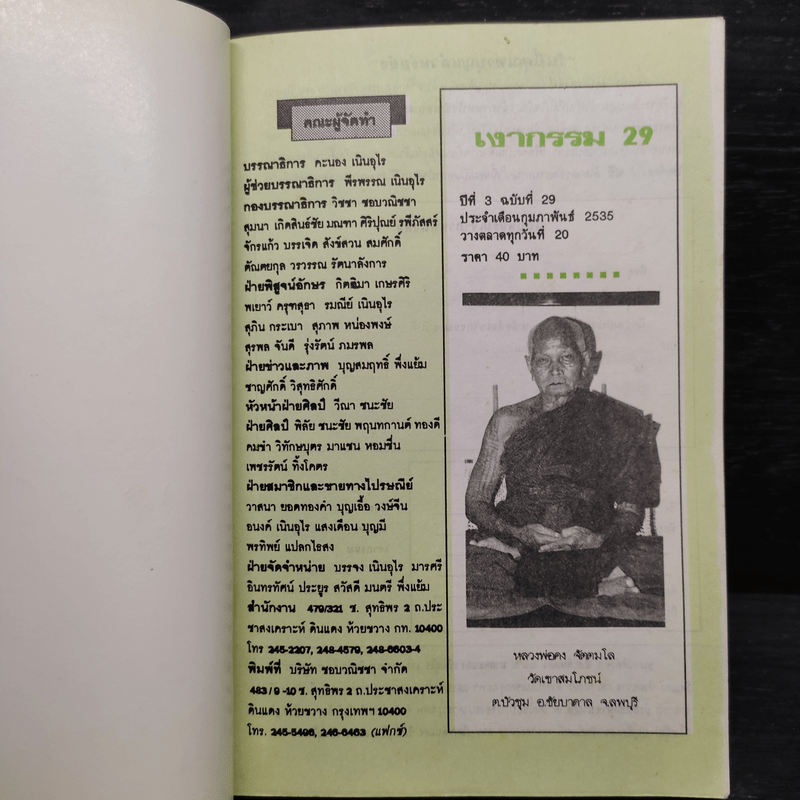 คณะผู้จัดทำ
บรรณาธิการ คะนอง เนินอุไร
ผู้ช่วยบรรณาธิการ พีรพรรณ เนินอุไร
กองบรรณาธิการ วิชชา ชอบวณิชชา
สุมนา เกิดสินธ์ชัย มณฑา ศิริปุณย์ รพีภัสสร์
จักรแก้ว บรรเจิด สังข์สวน สมศักดิ์
ตัณตยกุล วรวรรณ รัตนาลังการ
ฝ่ายพิสูจน์อักษร กิตติมา เกษรศิริ
พเยาว์ ครุฑสุธา รมณีย์ เนินอุไร
สุภิน กระเบา สุภาพ หน่องพงษ์
สุรพล จันดี รุ่งรัตน์ ภมรพล
ฝ่ายข่าวและภาพ บุญสมฤทธิ์ พึ่งแย้ม
ชาญศักดิ์ วิสุทธิศักดิ์
หัวหน้าฝ่ายศิลป์ วีณา ชนะชัย
ฝ่ายศิลป์ พิลัย ชนะชัย พฤนทกานต์ ทองดี
คมขำ วิทักษบุตร มาแชน หอมชื่น
เพชรรัตน์ ทิ้งโคตร
ฝ่ายสมาชิกและขายทางไปรษณีย์
วาสนา ยอดทองคำ บุญเอื้อ วงษ์จีน
อนงค์ เนินอุไร แสงเดือน บุญมี
พรทิพย์ แปลกไธสง
ฝ่ายจัดจำหน่าย บรรจง เนินอุไร มารศรี
อินทรทัศน์ ประยูร สวัสดี มนตรี พึ่งแย้ม
สำนักงาน 479/321 ซ. สุทธิพร 2 ถ.ประ
ชาสงเคราะห์ ดินแดง ห้วยขวาง กท. 10400
โทร 245-2207, 248-4579, 248-6603-4
พิมพ์ที่ บริษัท ชอบวณิชชา จำกัด
483/9 -10 ซ. สุทธิพร 2 ถ.ประชาสงเคราะห์
ดินแดง ห้วยขวาง กรุงเทพฯ 10400
โทร. 245-5496, 246-6463 (แฟกซ์)
เงากรรม 29
ปีที่ 3 ฉบับที่ 29
ประจำเดือนกุมภาพันธ์ 2535
วางตลาดทุกวันที่ 20
ราคา 40 บาท
หลวงพ่อคง จัตตมโล
วัดเขาสมโภชน์
ต.บัวชุม อ.ชัยบาดาล จ.ลพบุรี